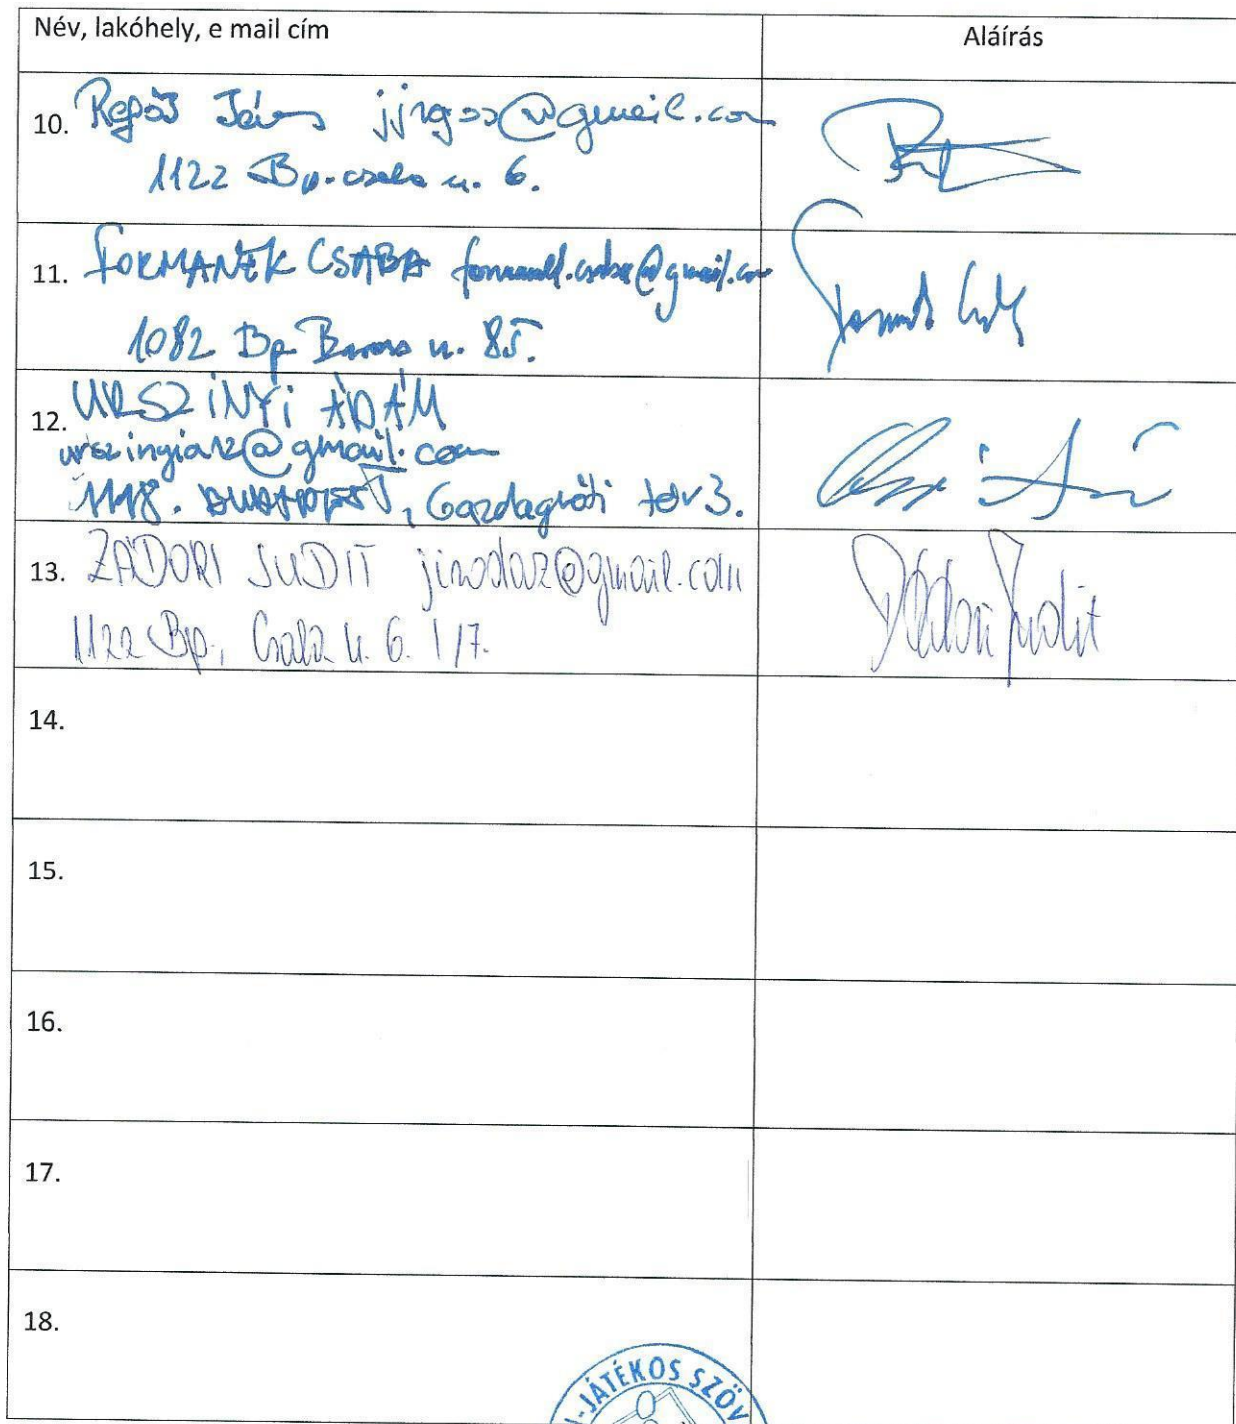 Név, lakóhely, e mail cím
Aláírás
10. János @gmail.com
1122 Bp. Csala u. 6.
11. FORMANEK CSABA @gmail.com
1082 Bp Baross u. 85.
12. URSZINYI ÁDÁM
urszinyiarz@gmail.com
1118. BUDAPEST, Gazdagréti tér 3.
13. ZÁDORI JUDIT jirodaz@gmail.com
1122 Bp., Csala u. 6. 1/7.
Zádori Judit
14.
15.
16.
17.
18.
-JÁTÉKOS SZÖV